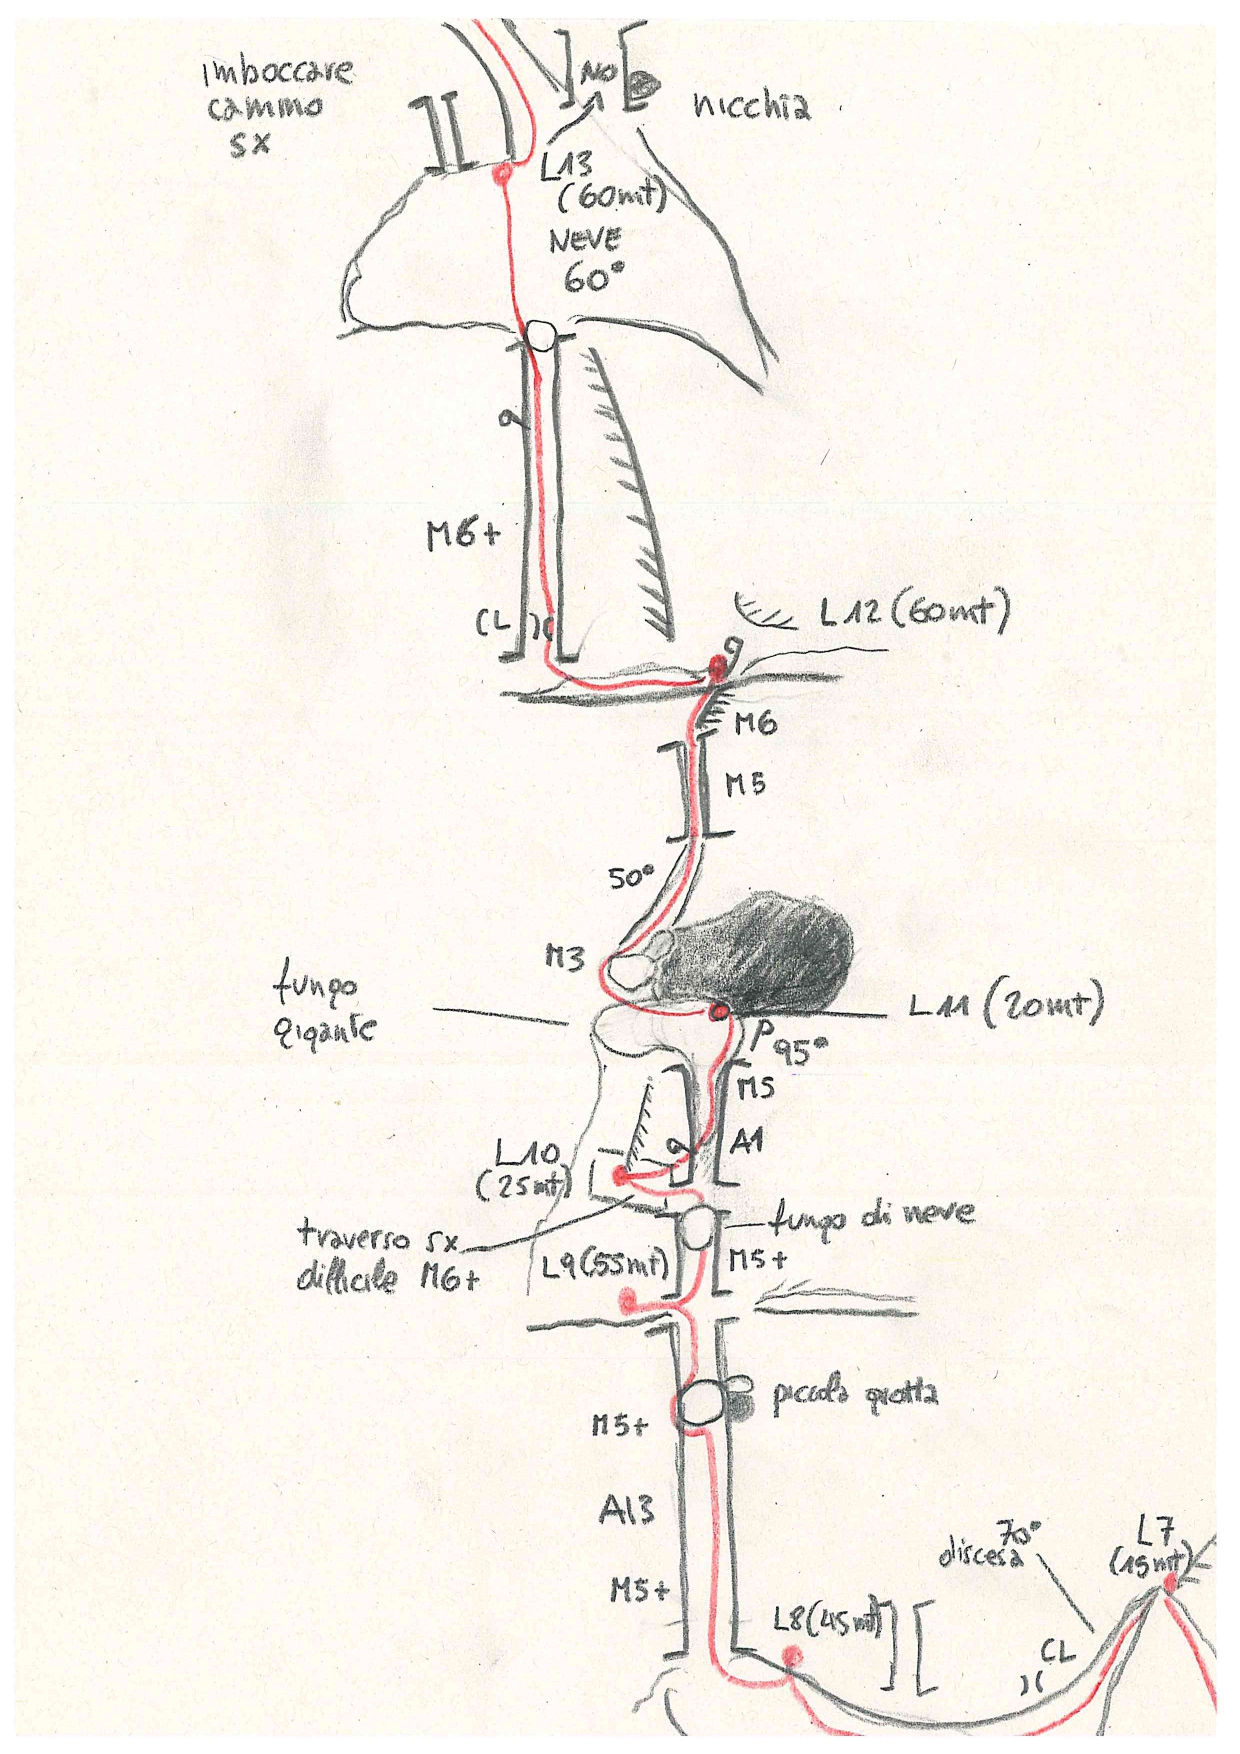 imboccare
cammino
sx
NO
nicchia
L13
(60mt)
NEVE
60°
M6+
CL
L12 (60mt)
M6
M5
50°
M3
fungo
gigante
L11 (20mt)
P
95°
M5
A1
L10
(25mt)
fungo di neve
traverso sx
difficile M6+
L9 (55mt)
M5+
piccola grotta
M5+
AI3
M5+
70°
discesa
L7
(15mt)
L8 (45mt)
CL